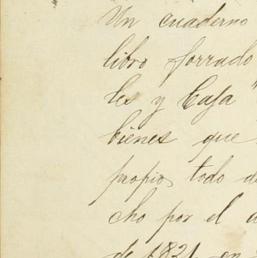 Un cuaderno
libro forrado
les y Caja "
bienes que
propio, todo de
cho por el a
de 1821 en